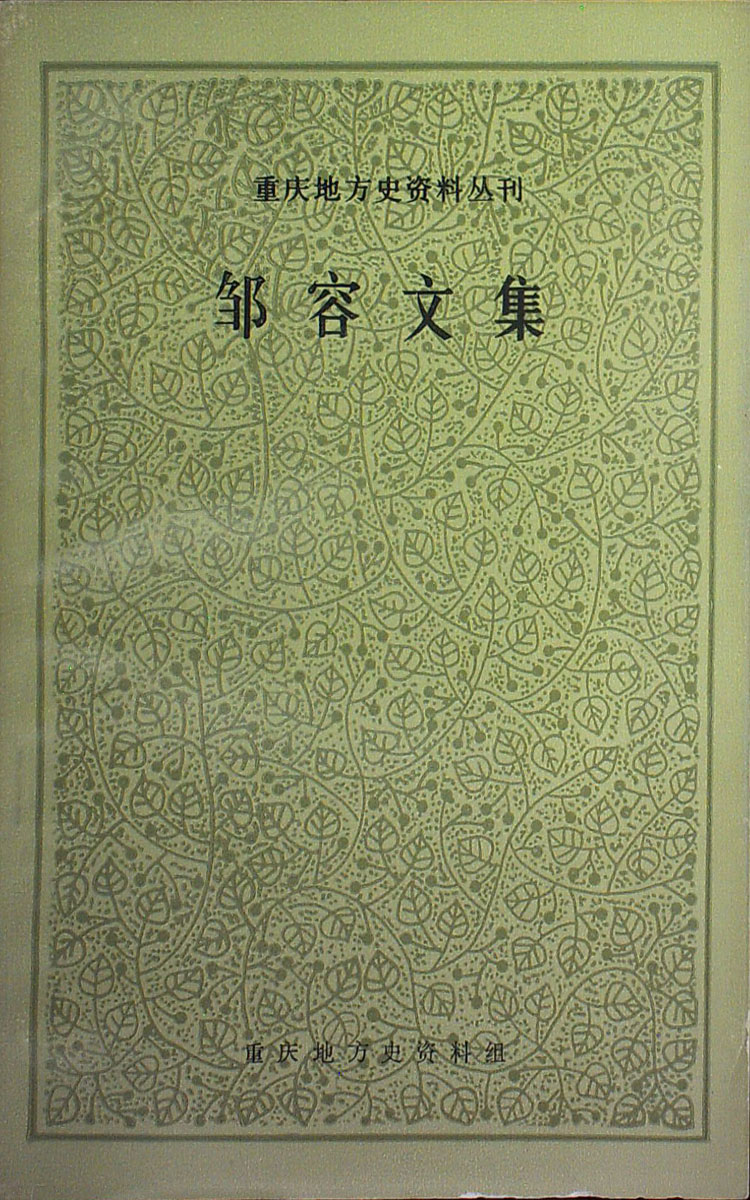 重庆地方史资料丛刊
邹容文集
重庆地方史资料组